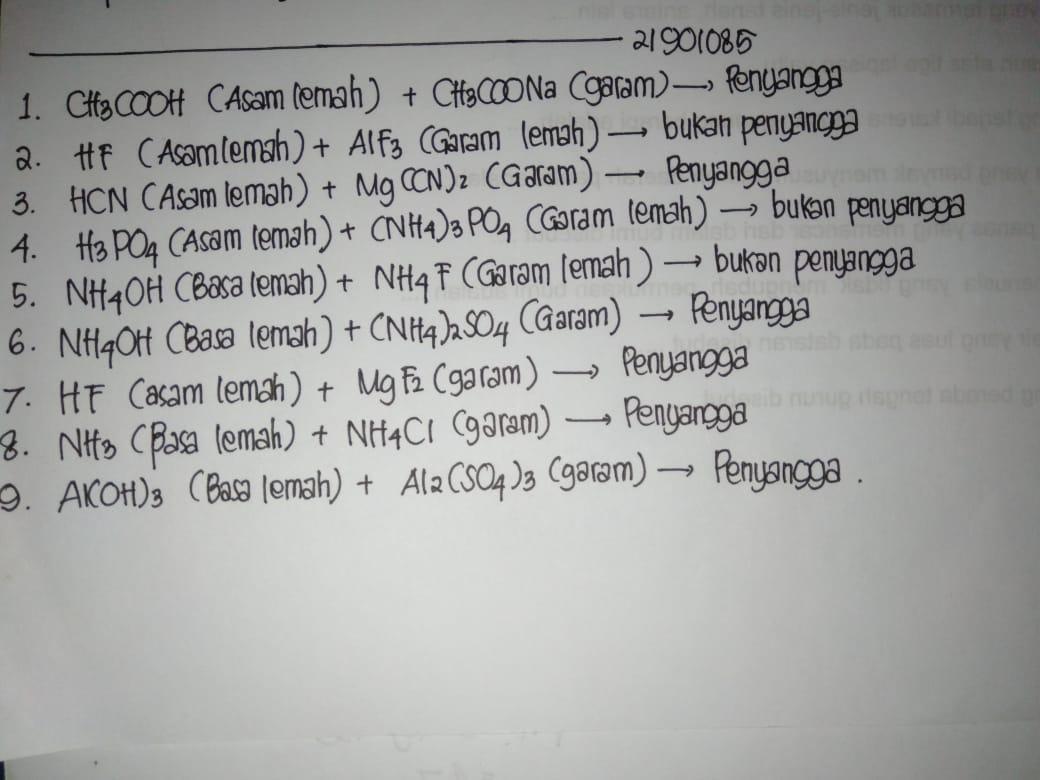 21901085
1. CH3COOH (Asam lemah) + CH3COONa (garam) → Penyangga
2. HF (Asam lemah) + AlF3 (Garam lemah) → bukan penyangga
3. HCN (Asam lemah) + Mg(CN)2 (Garam) → Penyangga
4. H3PO4 (Asam lemah) + (NH4)3PO4 (Garam lemah) → bukan penyangga
5. NH4OH (Basa lemah) + NH4F (Garam lemah) → bukan penyangga
6. NH4OH (Basa lemah) + (NH4)2SO4 (Garam) → Penyangga
7. HF (asam lemah) + MgF2 (garam) → Penyangga
8. NH3 (Basa lemah) + NH4Cl (garam) → Penyangga
9. Al(OH)3 (Basa lemah) + Al2(SO4)3 (garam) → Penyangga.